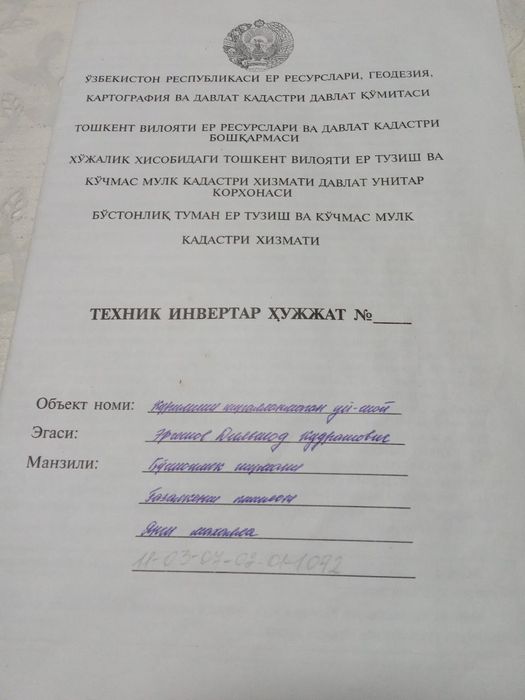 ЎЗБЕКИСТОН РЕСПУБЛИКАСИ ЕР РЕСУРСЛАРИ, ГЕОДЕЗИЯ,
КАРТОГРАФИЯ ВА ДАВЛАТ КАДАСТРИ ДАВЛАТ ҚЎМИТАСИ
ТОШКЕНТ ВИЛОЯТИ ЕР РЕСУРСЛАРИ ВА ДАВЛАТ КАДАСТРИ
БОШҚАРМАСИ
ХЎЖАЛИК ХИСОБИДАГИ ТОШКЕНТ ВИЛОЯТИ ЕР ТУЗИШ ВА
КЎЧМАС МУЛК КАДАСТРИ ХИЗМАТИ ДАВЛАТ УНИТАР
КОРХОНАСИ
БЎСТОНЛИҚ ТУМАН ЕР ТУЗИШ ВА КЎЧМАС МУЛК
КАДАСТРИ ХИЗМАТИ
ТЕХНИК ИНВЕРТАР ҲУЖЖАТ №____
Объект номи: Қурилиши тугалланмаган уй-жой
Эгаси: Эргашов Дилшод Кудратович
Манзили: Бўстонлиқ тумани
Ғазалкент
Янги махалла
11-03-07-02-01-1092